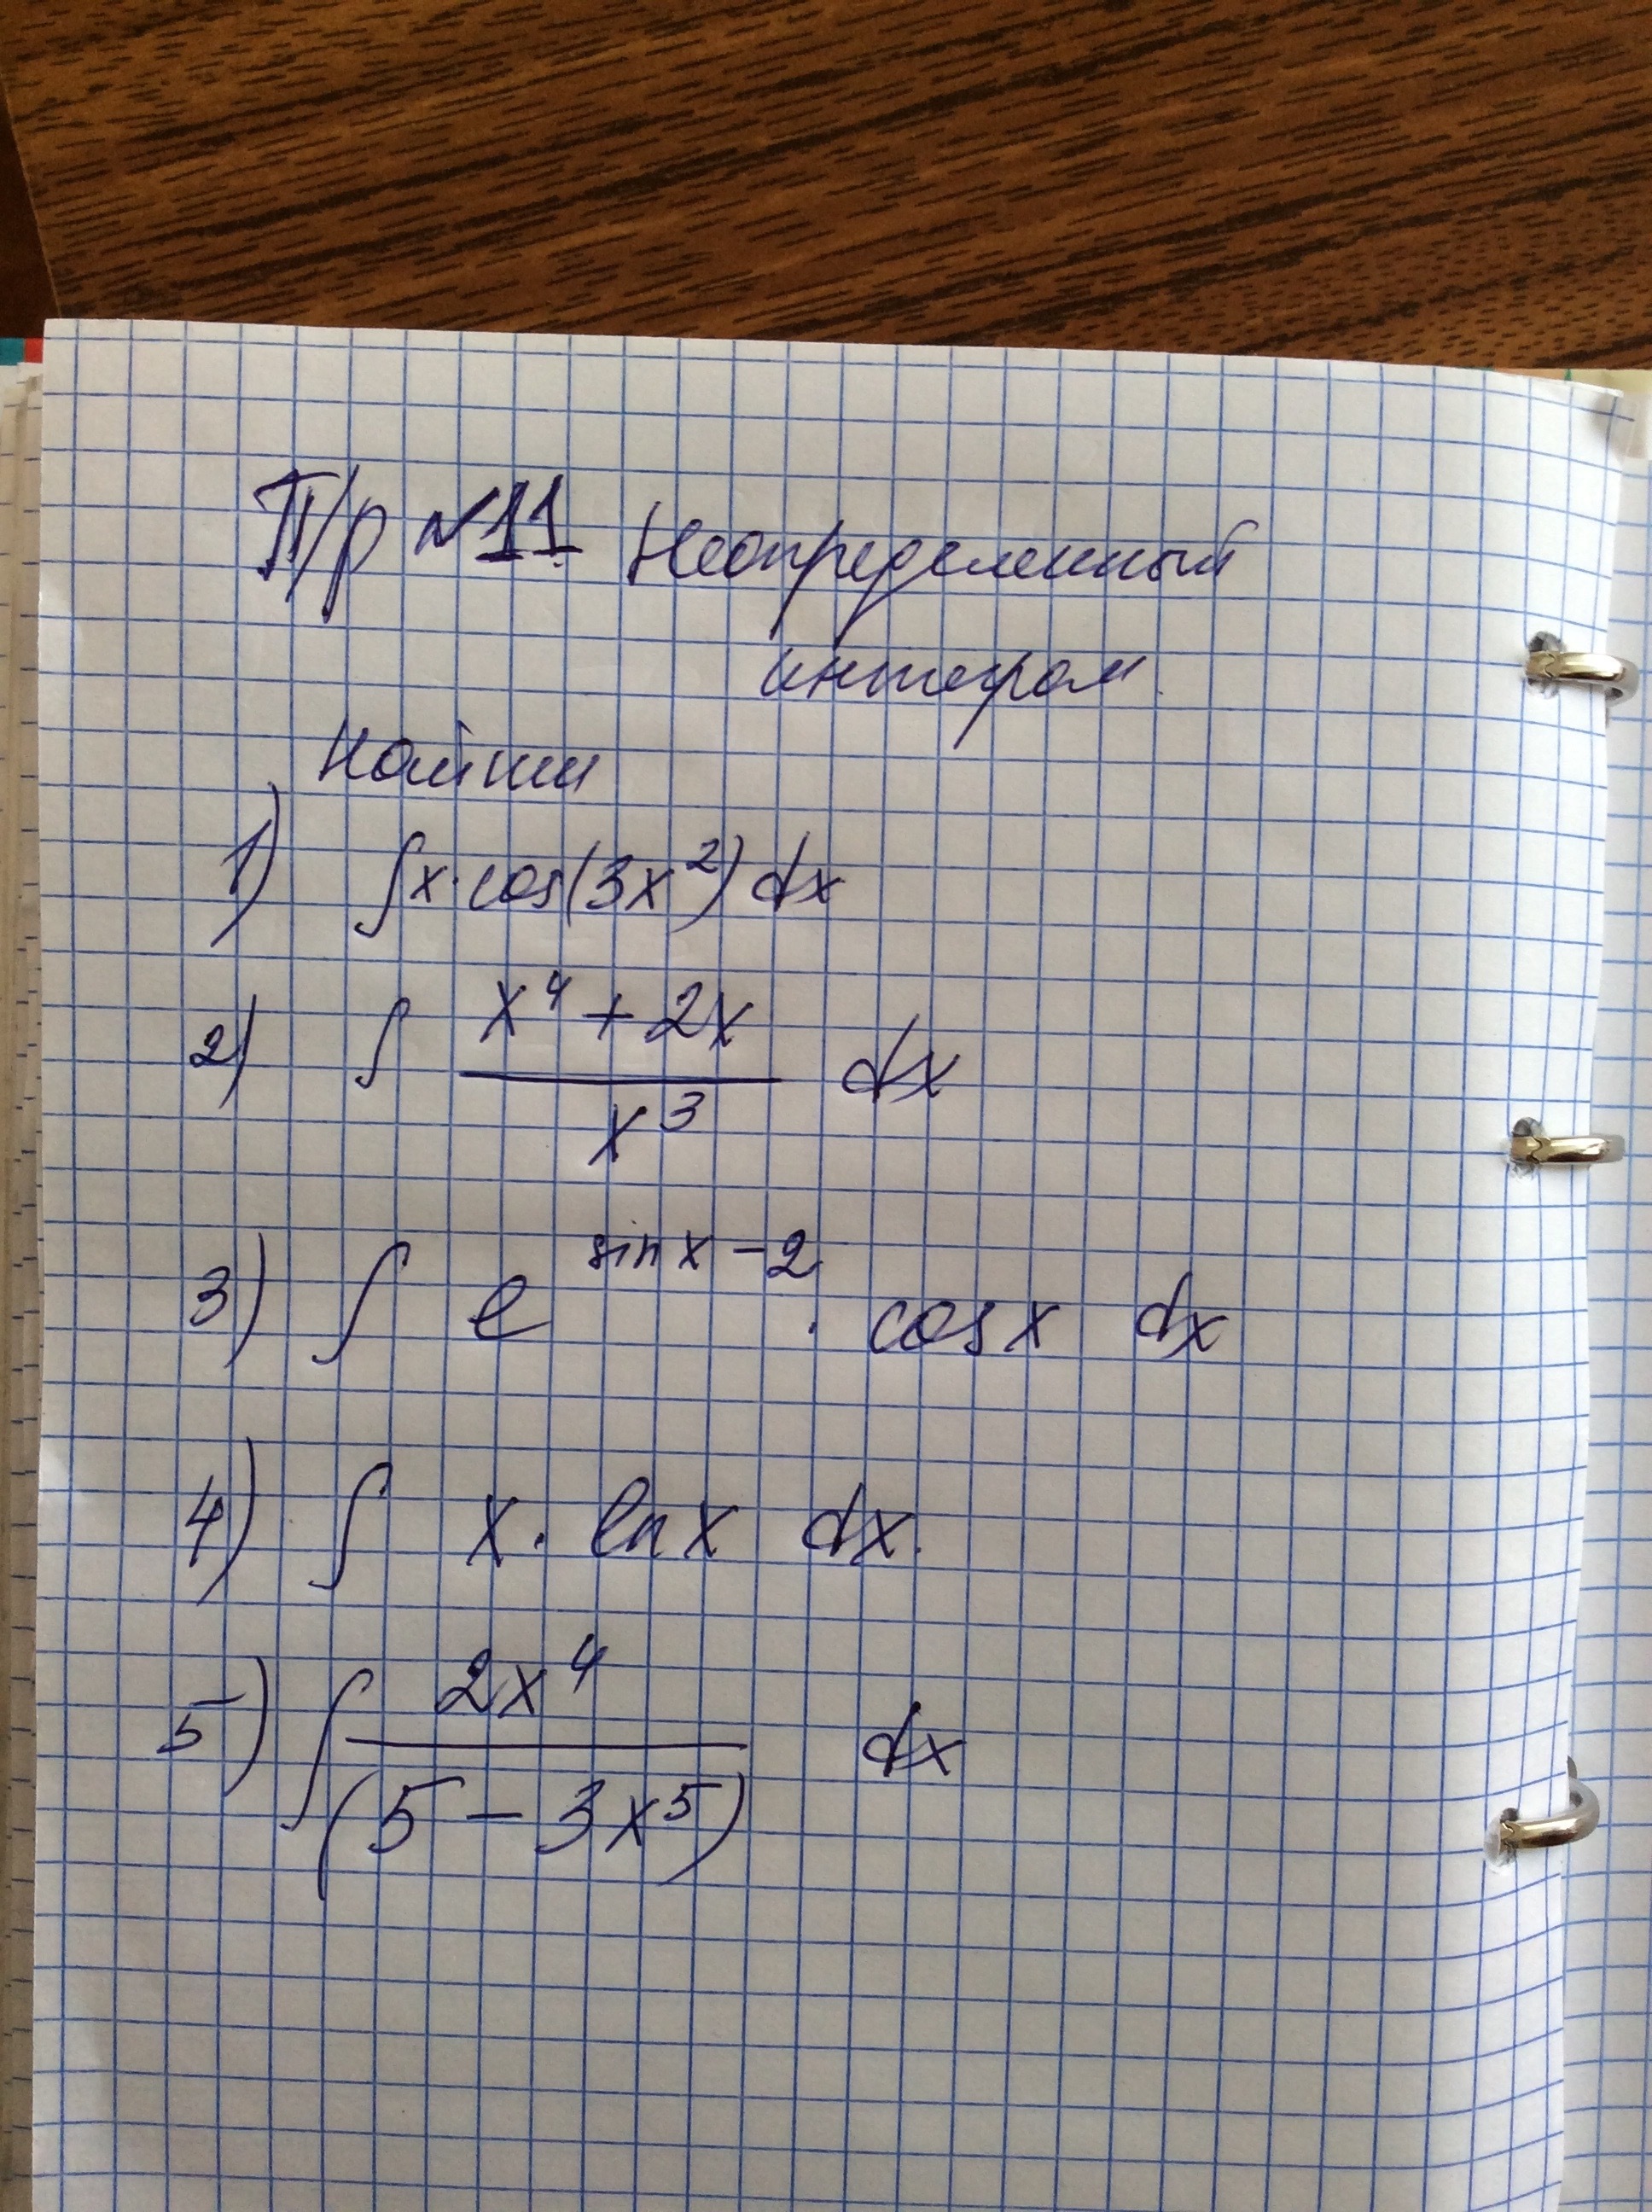 П/р №11 Неопределенный
интеграл.
Найти
1) ∫x·cos(3x²)dx
2) ∫ (x⁴+2x)/x³ dx
3) ∫ e^(sinx-2) · cosx dx
4) ∫ x·lnx dx.
5) ∫ 2x⁴/(5-3x⁵) dx